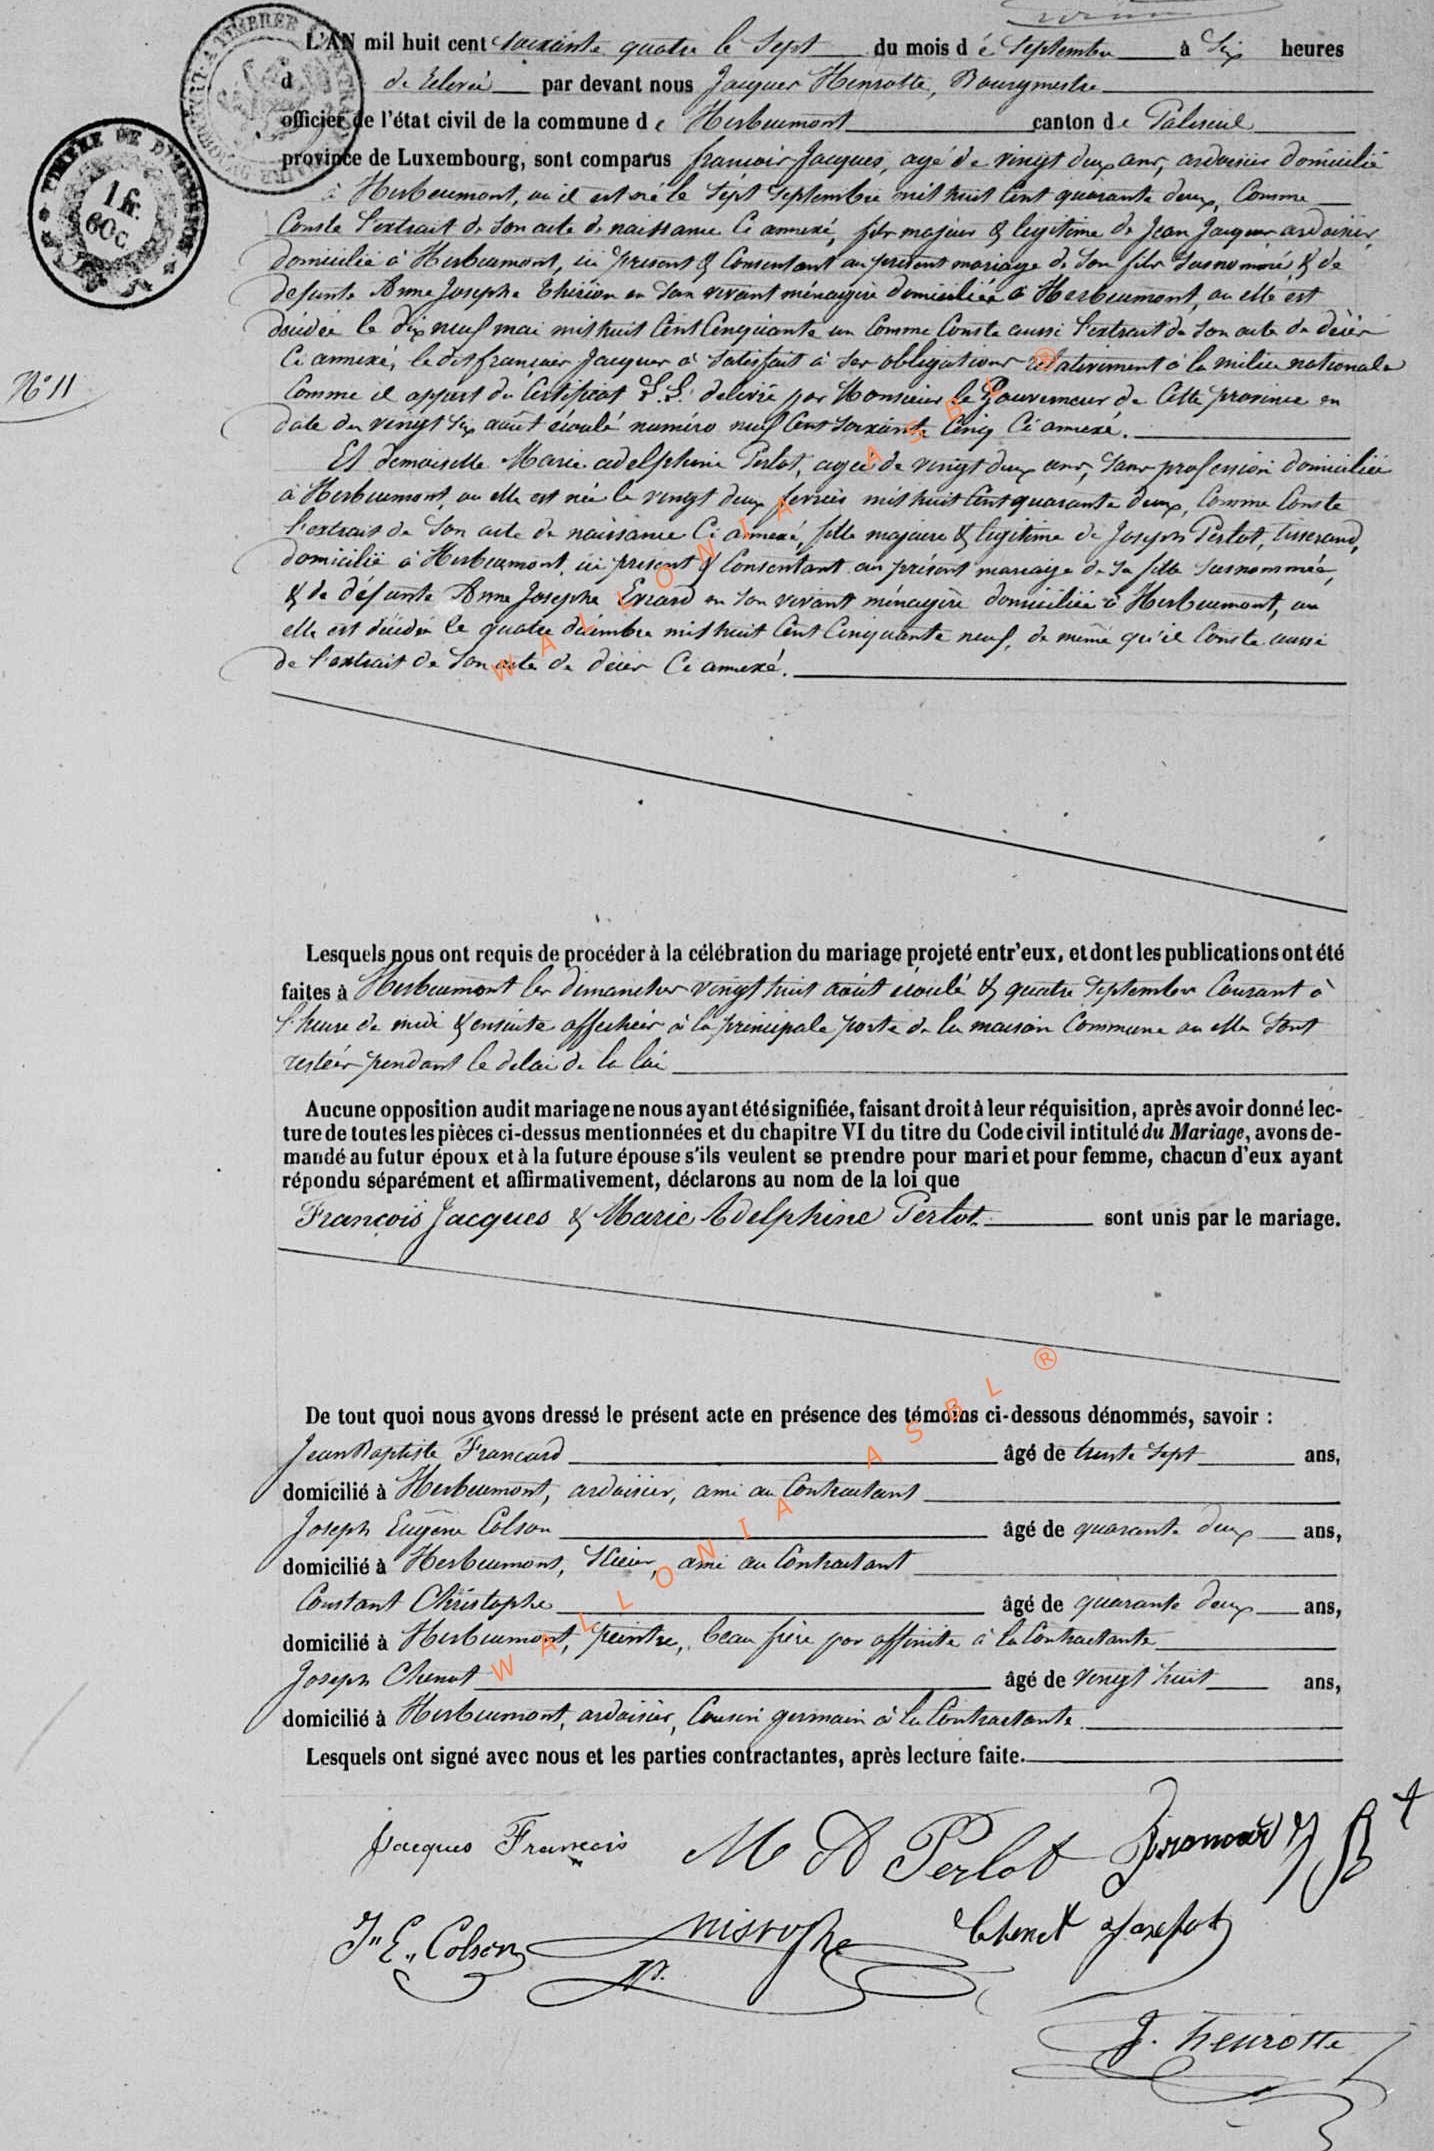 L'AN mil huit cent soixante quatre le sept du mois de septembre à six heures
d de relevée par devant nous Jacques Henrotte, Bourgmestre
officier de l'état civil de la commune de Herbeumont canton de Paliseul
province de Luxembourg, sont comparus françois Jacques, agé de vingt deux ans, ardoisier domicilié
à Herbeumont, où il est né le sept septembre mil huit cent quarante deux, comme
conste l'extrait de son acte de naissance ci annexé, fils majeur & légitime de Jean Jacques ardoisier,
domicilié à Herbeumont, ici présent & consentant au présent mariage de son fils susnommé & de
defunte Anne Josephe Thirion en son vivant ménagère domiciliée à Herbeumont, où elle est
décédée le dix neuf mai mil huit cent cinquante un comme conste aussi l'extrait de son acte de décès
ci annexé, le dit françois Jacques a satisfait à ses obligations relativement à la milice nationale
comme il appert du certificat L.L. délivré par Monsieur le Gouverneur de cette province en
date du vingt six août écoulé numéro neuf cent soixante cinq ci annexé.
N° 11
Et demoiselle Marie adelphine Perlot, agée de vingt deux ans, sans profession domiciliée
à Herbeumont, où elle est née le vingt deux fevrier mil huit cent quarante deux, comme conste
l'extrait de son acte de naissance ci annexé, fille majeure & légitime de Joseph Perlot, tisserand,
domicilié à Herbeumont, ici présent & consentant au présent mariage de sa fille susnommée,
& de défunte Anne Josephe Evrard en son vivant ménagère domiciliée à Herbeumont, où
elle est décédée le quatre décembre mil huit cent cinquante neuf, de même qu'il conste aussi
de l'extrait de son acte de décès ci annexé.
Lesquels nous ont requis de procéder à la célébration du mariage projeté entr'eux, et dont les publications ont été
faites à Herbeumont les dimanches vingt huit août écoulé & quatre septembre courant à
l'heure de midi & ensuite affichées à la principale porte de la maison commune où elles sont
restées pendant le delai de la loi
Aucune opposition audit mariage ne nous ayant été signifiée, faisant droit à leur réquisition, après avoir donné lec-
ture de toutes les pièces ci-dessus mentionnées et du chapitre VI du titre du Code civil intitulé du Mariage, avons de-
mandé au futur époux et à la future épouse s'ils veulent se prendre pour mari et pour femme, chacun d'eux ayant
répondu séparément et affirmativement, déclarons au nom de la loi que
François Jacques & Marie Adelphine Perlot. sont unis par le mariage.
De tout quoi nous avons dressé le présent acte en présence des témoins ci-dessous dénommés, savoir :
Jean Baptiste Francard âgé de trente sept ans,
domicilié à Herbeumont, ardoisier, ami au contractant
Joseph Eugène Colson âgé de quarante deux ans,
domicilié à Herbeumont, ami au contractant
Constant Christophe âgé de quarante deux ans,
domicilié à Herbeumont, peintre, beau frère par affinité à la contractante
Joseph Chenot âgé de vingt huit ans,
domicilié à Herbeumont, ardoisier, cousin germain à la contractante.
Lesquels ont signé avec nous et les parties contractantes, après lecture faite.
Jacques François M A Perlot Francard J B
J. E. Colson Chenot Joseph
J. Henrotte
TIMBRE DE DIMENSION
1 fr.
60 c.
WALLONIA ASBL ®
WALLONIA ASBL ®